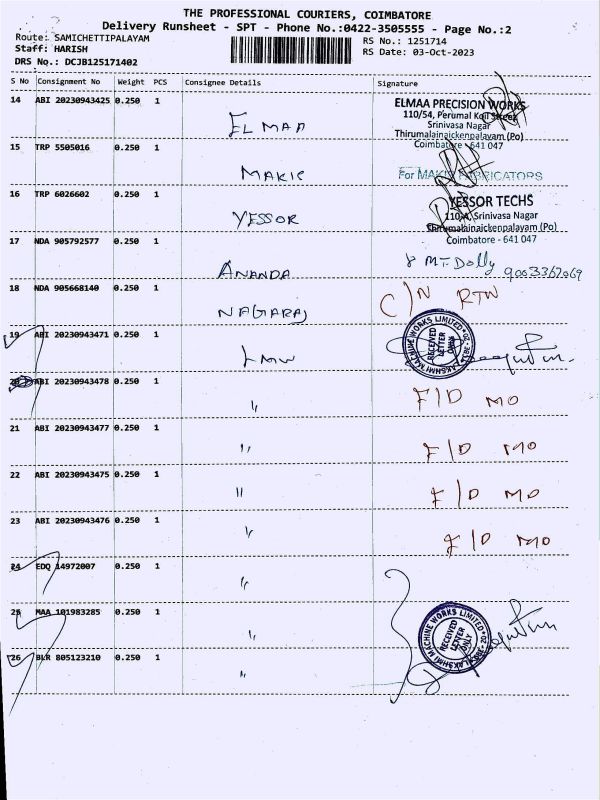 THE PROFESSIONAL COURIERS, COIMBATORE
Delivery Runsheet - SPT - Phone No.:0422-3505555 - Page No.:2
Route: SAMICHETTIPALAYAM
Staff: HARISH
DRS No.: DCJB125171402
RS No.: 1251714
RS Date: 03-Oct-2023
S No Consignment No Weight PCS Consignee Details Signature
14 ABI 20230943425 0.250 1 ELMAA
ELMAA PRECISION WORKS
110/54, Perumal Koil Street
Srinivasa Nagar
Thirumalainaickenpalayam (Po)
Coimbatore - 641 047
15 TRP 5505016 0.250 1 MAKIC
For MAKIC FABRICATORS
16 TRP 6026602 0.250 1 YESSOR
YESSOR TECHS
110-A, Srinivasa Nagar
Thirumalainaickenpalayam (Po)
Coimbatore - 641 047
17 NDA 905792577 0.250 1 ANANDA
MT. Dolly 9003367069
18 NDA 905668140 0.250 1 NAGARAJ C/N RTN
19 ABI 20230943471 0.250 1 LMW
LAKSHMI MACHINE WORKS LIMITED
RECEIVED LETTER ONLY
20 ABI 20230943478 0.250 1 " F/D MO
21 ABI 20230943477 0.250 1 " F/D MO
22 ABI 20230943475 0.250 1 " F/D MO
23 ABI 20230943476 0.250 1 " F/D MO
24 EDQ 14972007 0.250 1 "
25 MAA 101983285 0.250 1 "
LAKSHMI MACHINE WORKS LIMITED
RECEIVED LETTER ONLY
26 BLR 805123210 0.250 1 "